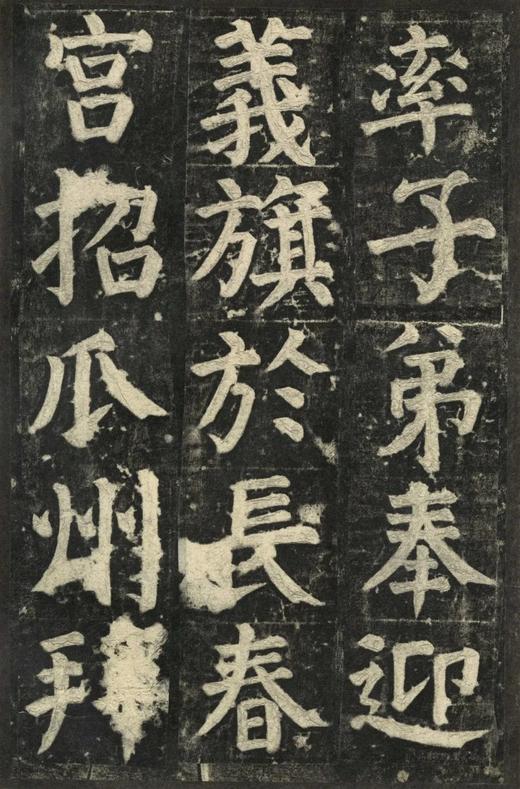 率子弟奉迎
義旗於長春
宮招瓜州拜